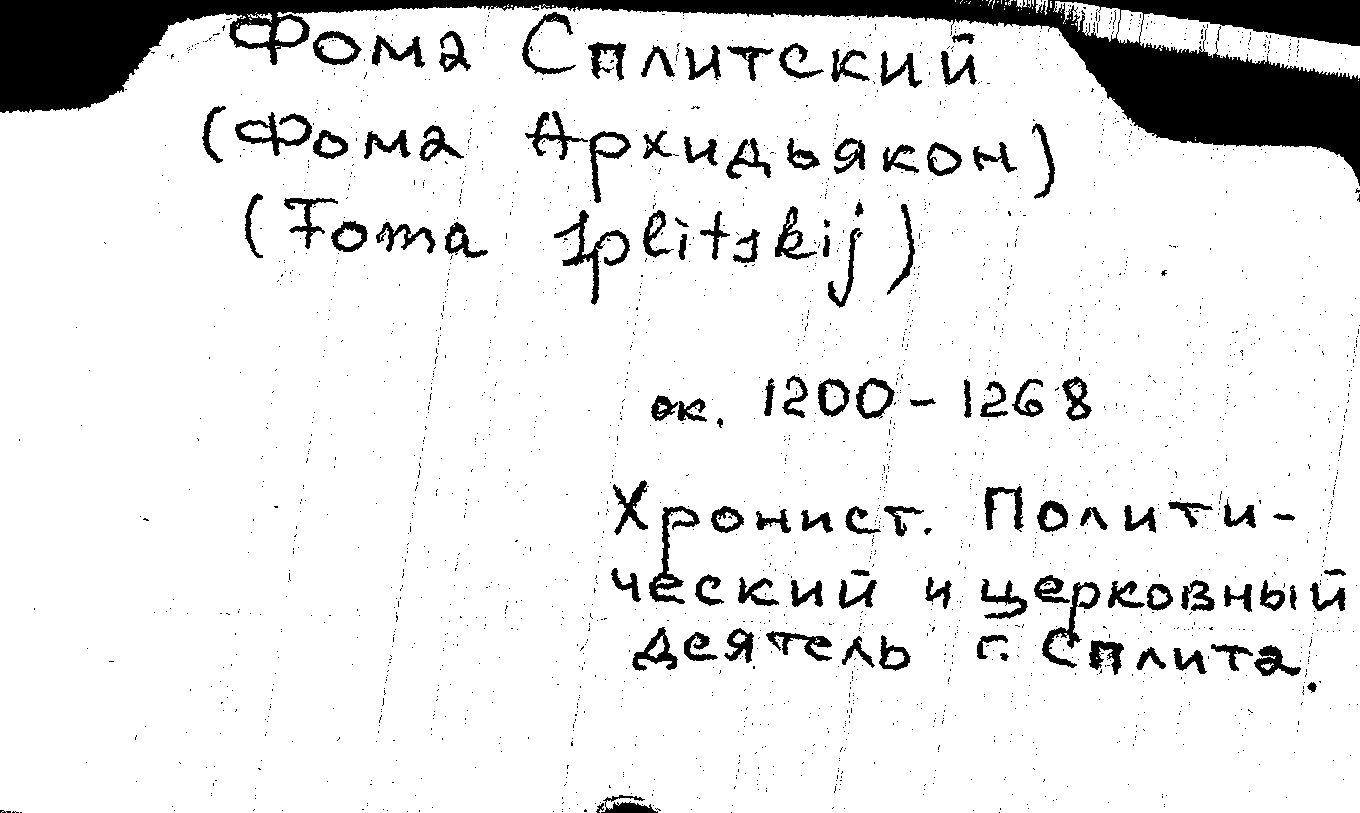 Фома Сплитский
(Фома Архидьякон)
(Foma Splitskij)
ок. 1200 - 1268
Хронист. Полити-
ческий и церковный
деятель г. Сплита.